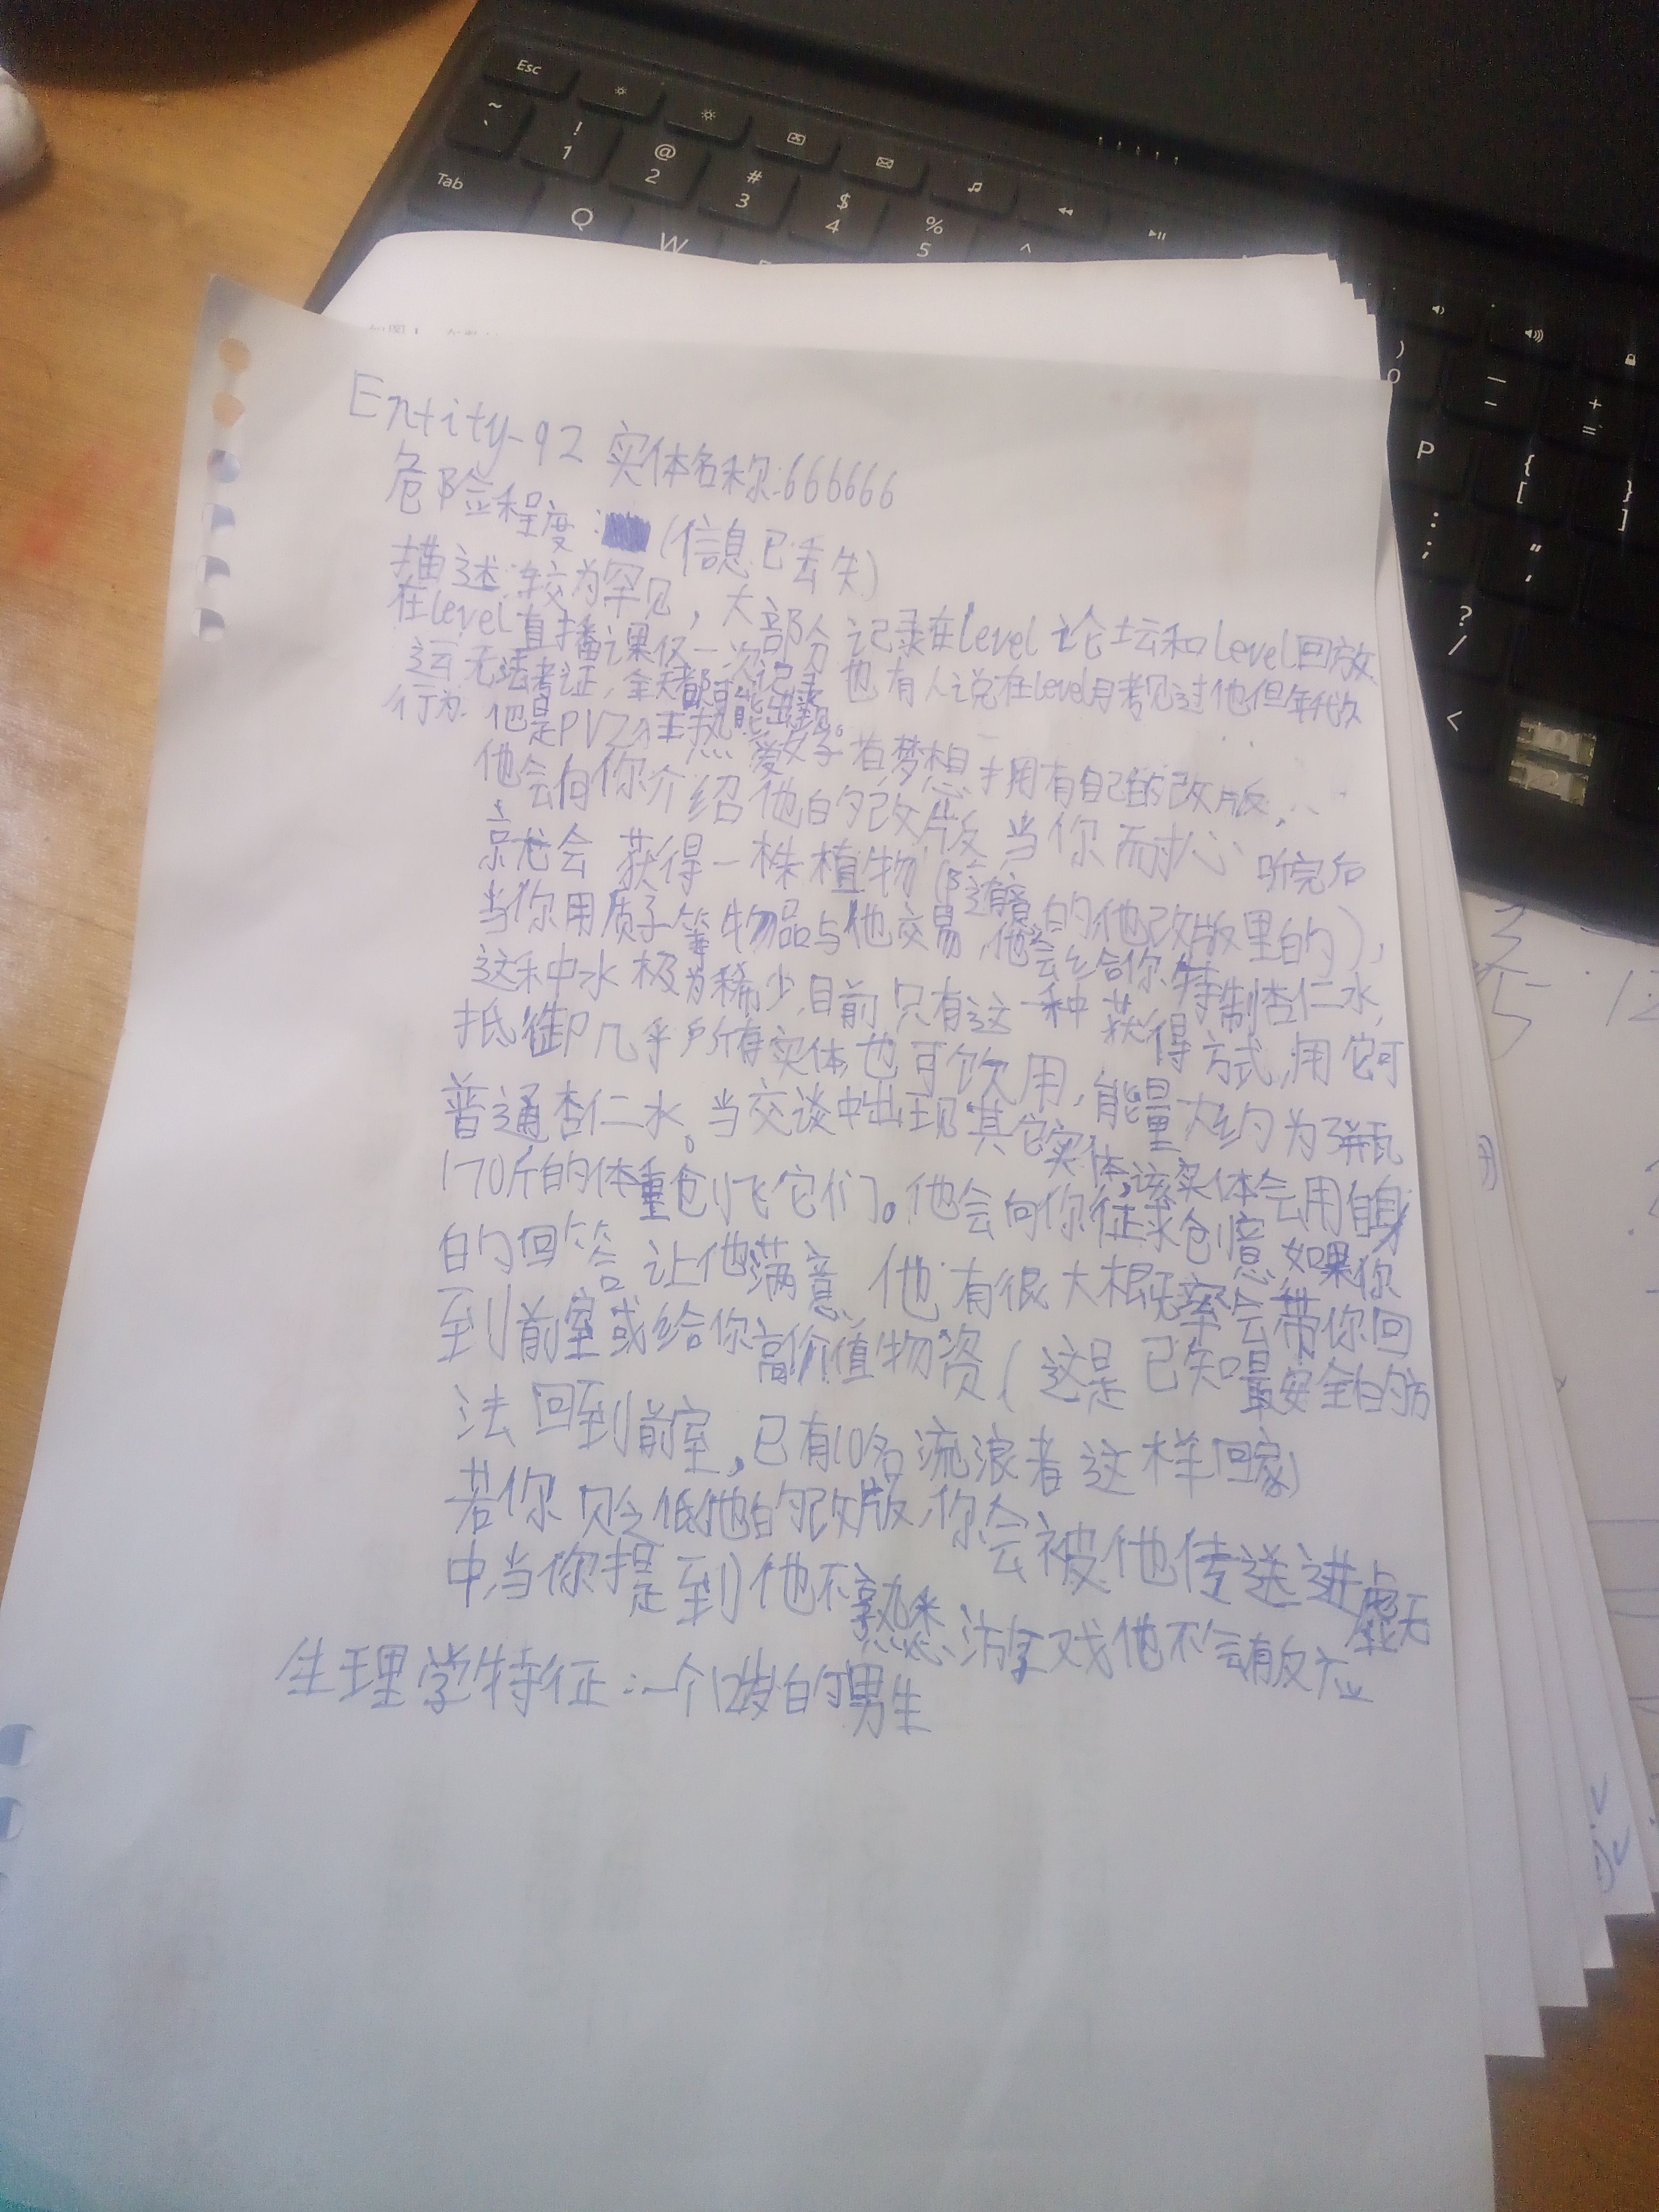 Esc
~ ` ! 1 @ 2 # 3 $ 4 % 5 ^
Tab Q W P { [ } ]
) 0 — - + =
: ; " '
? /
<
Entity-92 实体名称:666666
危险程度:(信息已丢失)
描述:较为罕见,大部分记录在level论坛和level回放
在level直播课仅一次记录也有人说在level月考见过他但年代久
远无法考证,全天都可能出现。
行为:他是PVZ的狂热爱好者梦想拥有自己的改版,
他会向你介绍他的改版,当你耐心听完后
就会获得一株植物(随意的,他改版里的),
当你用质子等物品与他交易,他会给你特制杏仁水,
这种水极为稀少,目前只有这一种获得方式,用它可
抵御几乎所有实体,也可饮用,能量大约为3瓶
普通杏仁水。当交谈中出现其它实体,该实体会用自身
170斤的体重创飞它们。他会向你征求创意,如果你
的回答让他满意,他有很大概率会带你回
到前室或给你高价值物资(这是已知最安全的方
法回到前室,已有10名流浪者这样回家)
若你贬低他的改版,你会被他传送进虚无
中,当你提到他不熟悉游戏他不会有反应
生理学特征:一个12岁的男生